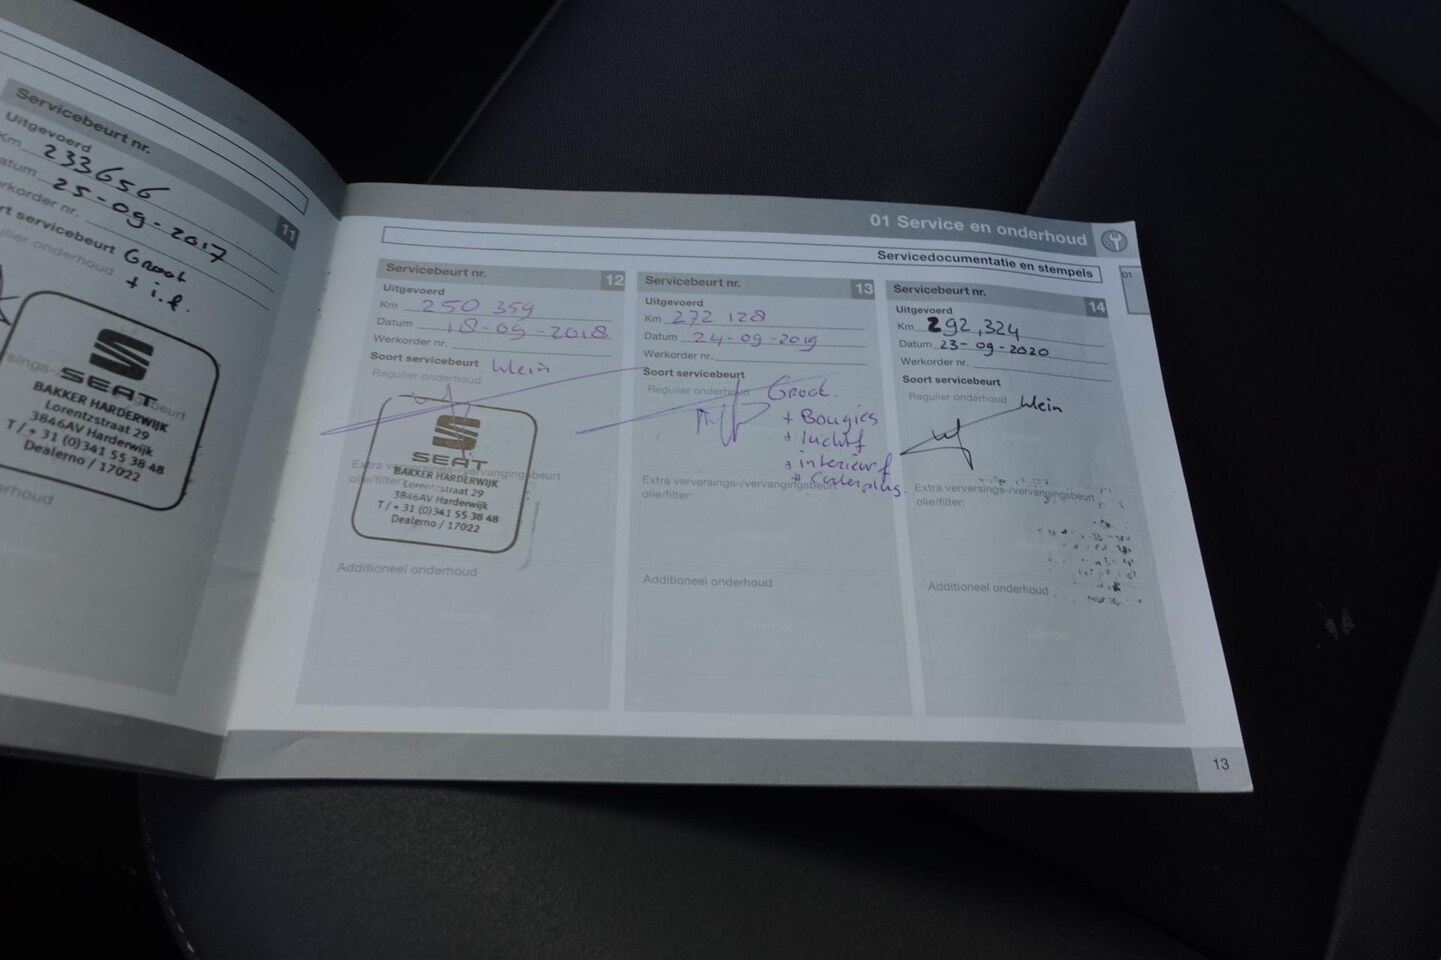 Servicebeurt nr.
11
Uitgevoerd
Km 233656
Datum 25-09-2017
Werkorder nr.
Soort servicebeurt Groot
Regulier onderhoud + i.f.
SEAT
BAKKER HARDERWIJK
Lorentzstraat 29
3846AV Harderwijk
T / + 31 (0)341 55 38 48
Dealerno / 17022
01 Service en onderhoud
Servicedocumentatie en stempels
01
Servicebeurt nr. 12
Uitgevoerd
Km 250 359
Datum 18-09-2018
Werkorder nr.
Soort servicebeurt klein
Regulier onderhoud
SEAT
Extra verversings-/vervangingsbeurt
olie/filter:
BAKKER HARDERWIJK
Lorentzstraat 29
3846AV Harderwijk
T / + 31 (0)341 55 38 48
Dealerno / 17022
Additioneel onderhoud
Servicebeurt nr. 13
Uitgevoerd
Km 272 128
Datum 24-09-2019
Werkorder nr.
Soort servicebeurt
Regulier onderhoud Groot.
+ Bougies
+ Luchtf
+ interieurf
Extra verversings-/vervangingsbeurt
olie/filter:
Additioneel onderhoud
Servicebeurt nr. 14
Uitgevoerd
Km 292,324
Datum 23-09-2020
Werkorder nr.
Soort servicebeurt
Regulier onderhoud klein
Extra verversings-/vervangingsbeurt
olie/filter:
Additioneel onderhoud
13